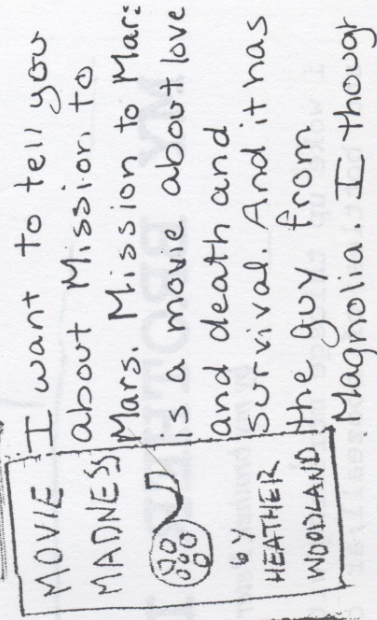 MOVIE
MADNESS
by
HEATHER
WOODLAND
I want to tell you
about Mission to
Mars. Mission to Mars
is a movie about love
and death and
survival. And it has
the guy from
Magnolia. I though